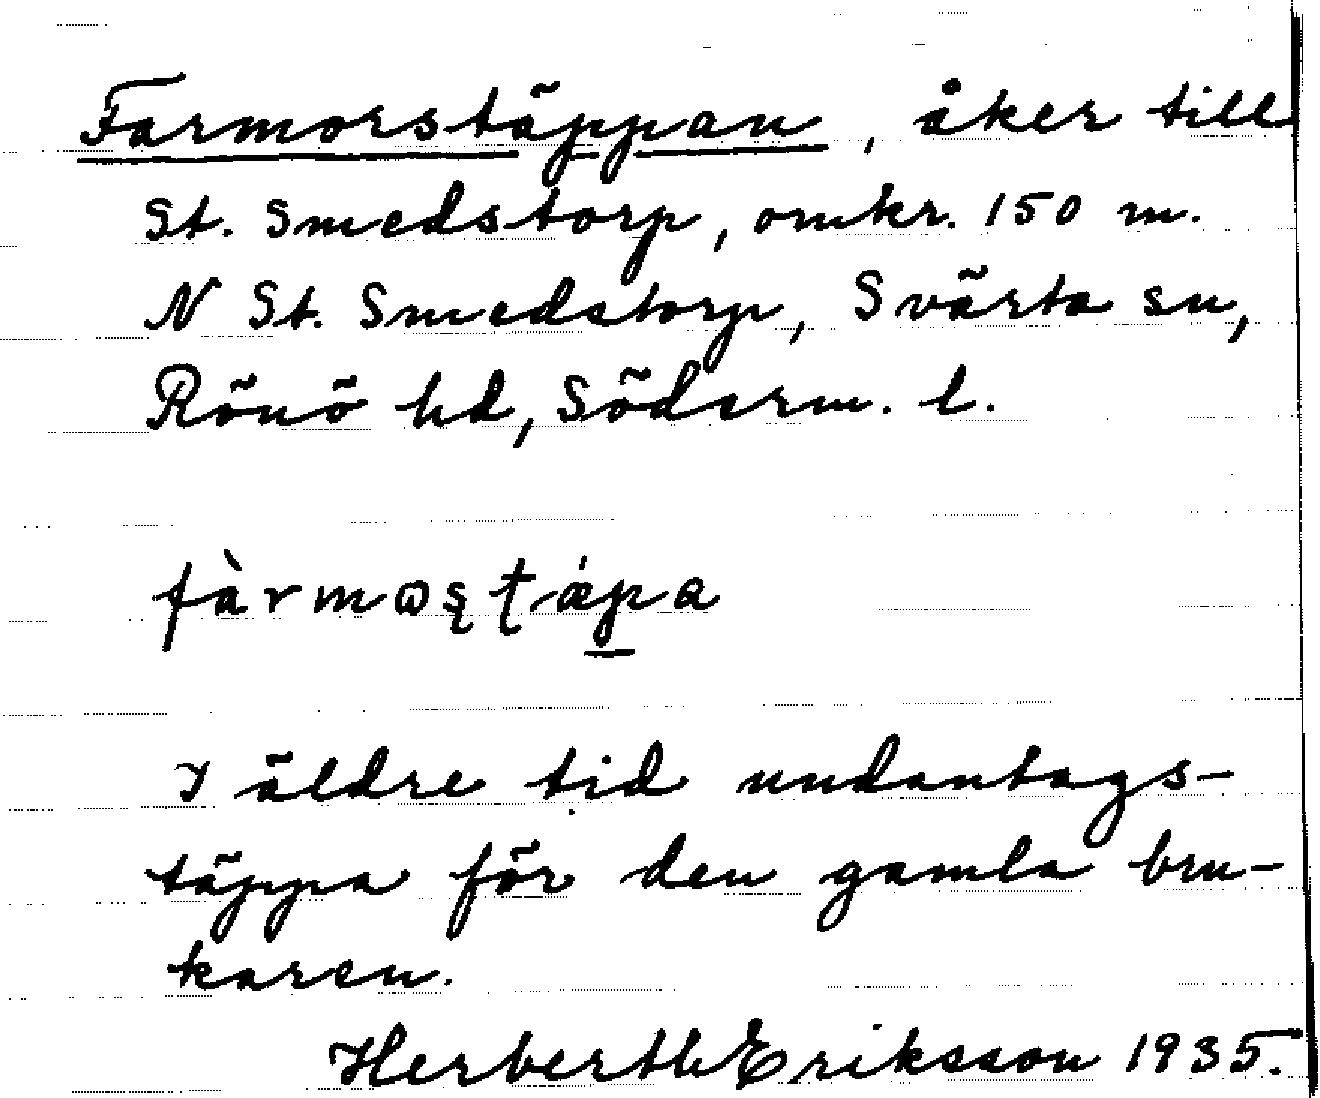 Farmorstäppan, åker till
St. Smedstorp, omkr. 150 m.
N St. Smedstorp, Svärta sn,
Rönö hd, Söderm. l.
fàrmɷʂʈǽp̲a
I äldre tid undantags-
täppa för den gamla bru-
karen.
Herberth Eriksson 1935.